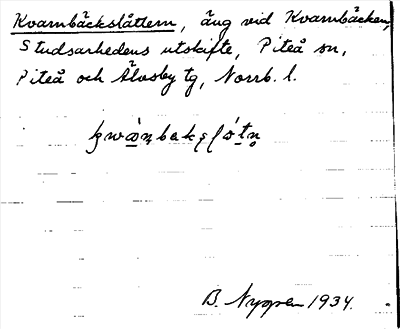 Kvarnbäckslåttern, äng vid Kvarnbäcken,
Studsarhedens utskifte, Piteå sn,
Piteå och Älvsby tg, Norrb. l.
B. Nygren 1934.